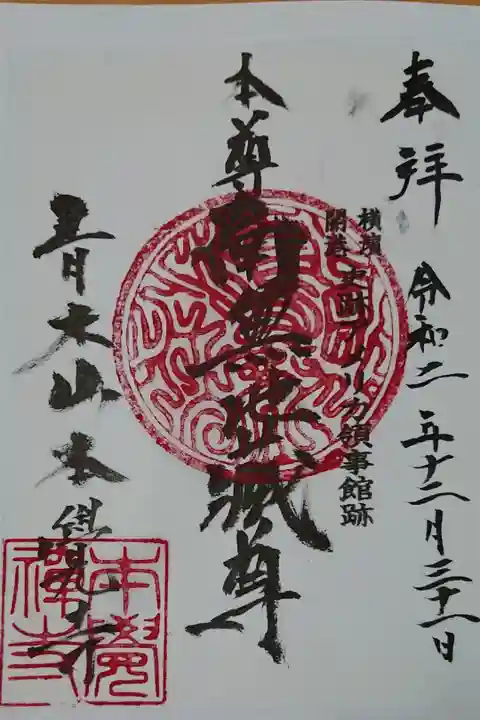 奉拝
令和二年十二月三十一日
横濱開港
史跡アメリカ領事館跡
本尊
南無地蔵尊
青木山本覺寺
本覺禅寺